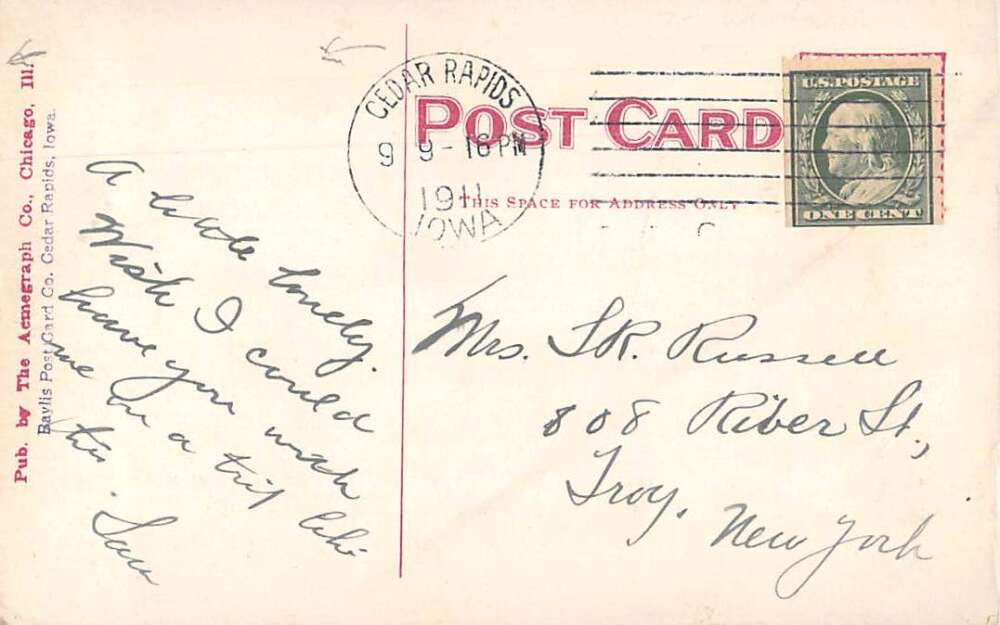 Pub. by The Acmegraph Co., Chicago, Ill.
Baylis Post Card Co. Cedar Rapids, Iowa.
A little lonely.
Wish I could
have you with
me on a trip like
this.
CEDAR RAPIDS
9 9-16PM
1911
IOWA
POST CARD
THIS SPACE FOR ADDRESS ONLY
U.S. POSTAGE
ONE CENT
Mrs. S.R. Russell
808 River St.,
Troy,
New York